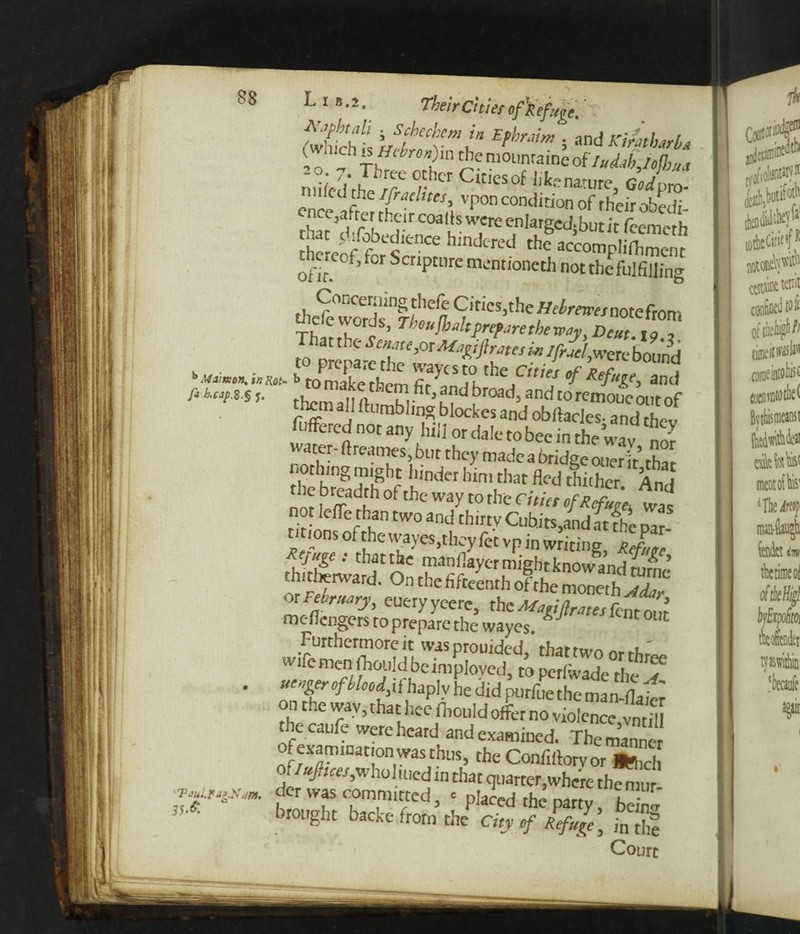 88 LIB.2. Their Cities of Refuge.
Naphtali ; Schechem in Ephraim ; and Kiriatharba
(which is Hebron)in the mountaine of Iudah,Ioſhua
20. 7. Three other Cities of like nature, God pro-
miſed the Iſraelites, vpon condition of their obedi-
ence,after their coaſts were enlarged;but it ſeemeth
that diſobedience hindered the accompliſhment
thereof, for Scripture mentioneth not the fulfilling
of it.
Concerning theſe Cities,the Hebrewes note from
theſe words, Thou ſhalt prepare the way, Deut. 19.3.
That the Senate,or Magiſtrates in Iſrael,were bound
to prepare the wayes to the Cities of Refuge, and
b to make them fit, and broad, and to remoue out of
them all ſtumbling blockes and obſtacles; and they
ſuffered not any hill or dale to bee in the way, nor
water-ſtreames, but they made a bridge ouer it,that
nothing might hinder him that fled thither. And
the breadth of the way to the Cities of Refuge, was
not leſſe than two and thirty Cubits,and at the par-
titions of the wayes,they ſet vp in writing, Refuge,
Refuge : that the manſlayer might know and turne
thitherward. On the fifteenth of the moneth Adar,
or February, euery yeere, the Magiſtrates ſent out
meſſengers to prepare the wayes.
Furthermore it was prouided, that two or three
wiſe men ſhould be imployed, to perſwade the A-
uenger of blood,if haply he did purſue the man-ſlaier
on the way, that hee ſhould offer no violence,vntill
the cauſe were heard and examined. The manner
of examination was thus, the Conſiſtory or Bench
of Iuſtices,who liued in that quarter,where the mur-
der was committed, c placed the party, being
brought backe from the City of Refuge, in the
Court
b Maimon. in Rot-
ſa h.cap.8.§ 5.
Paul.Fag.Num.
35.6.
Court
tyofvoluntary
death, but if oth
then did they
to the Citie of R
not onely with
certaine territ
confined to
of the high
time it was law
come into his c
euen vnto the C
By this means t
ſhed with deat
exile for his
ment of his
d The Areop
man-ſlaugh
the time of
of the High
by Expoſito
the offender
ty as within
because
again